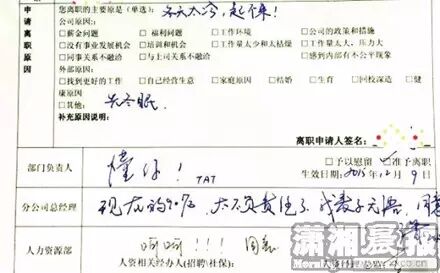 您离职的主要原是(单选): 冬天太冷,起不来!
申请离职原因
公司原因:
□薪金问题 □福利问题 □工作环境 □公司的政策和措施
□没有事业发展机会 □培训和机会 □工作量太少和太枯燥 □工作量太大,压力大
□同事关系不融洽 □与上司关系不融洽 □感到内部有不公平现象
外部原因:
□找到更好的工作 □自己经营生意 □家庭原因 □结婚 □生育 □回校深造 □健
康原因
□其他: 去冬眠
补充原因说明:
离职申请人签名:
部门负责人 懂你! TAT
□予以慰留 □准予离职
生效日期: 2015年12月9日
分公司总经理 现在的90后,太不负责任了,我表示无语,同意
人力资源部 呵呵!!! 同意
人资相关经办人(招聘/社保):
潇湘晨报